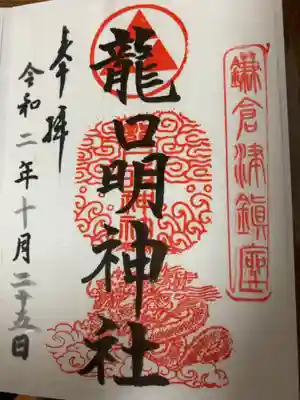 鎌倉津鎮座
龍口明神社
奉拝
令和二年十月二十五日